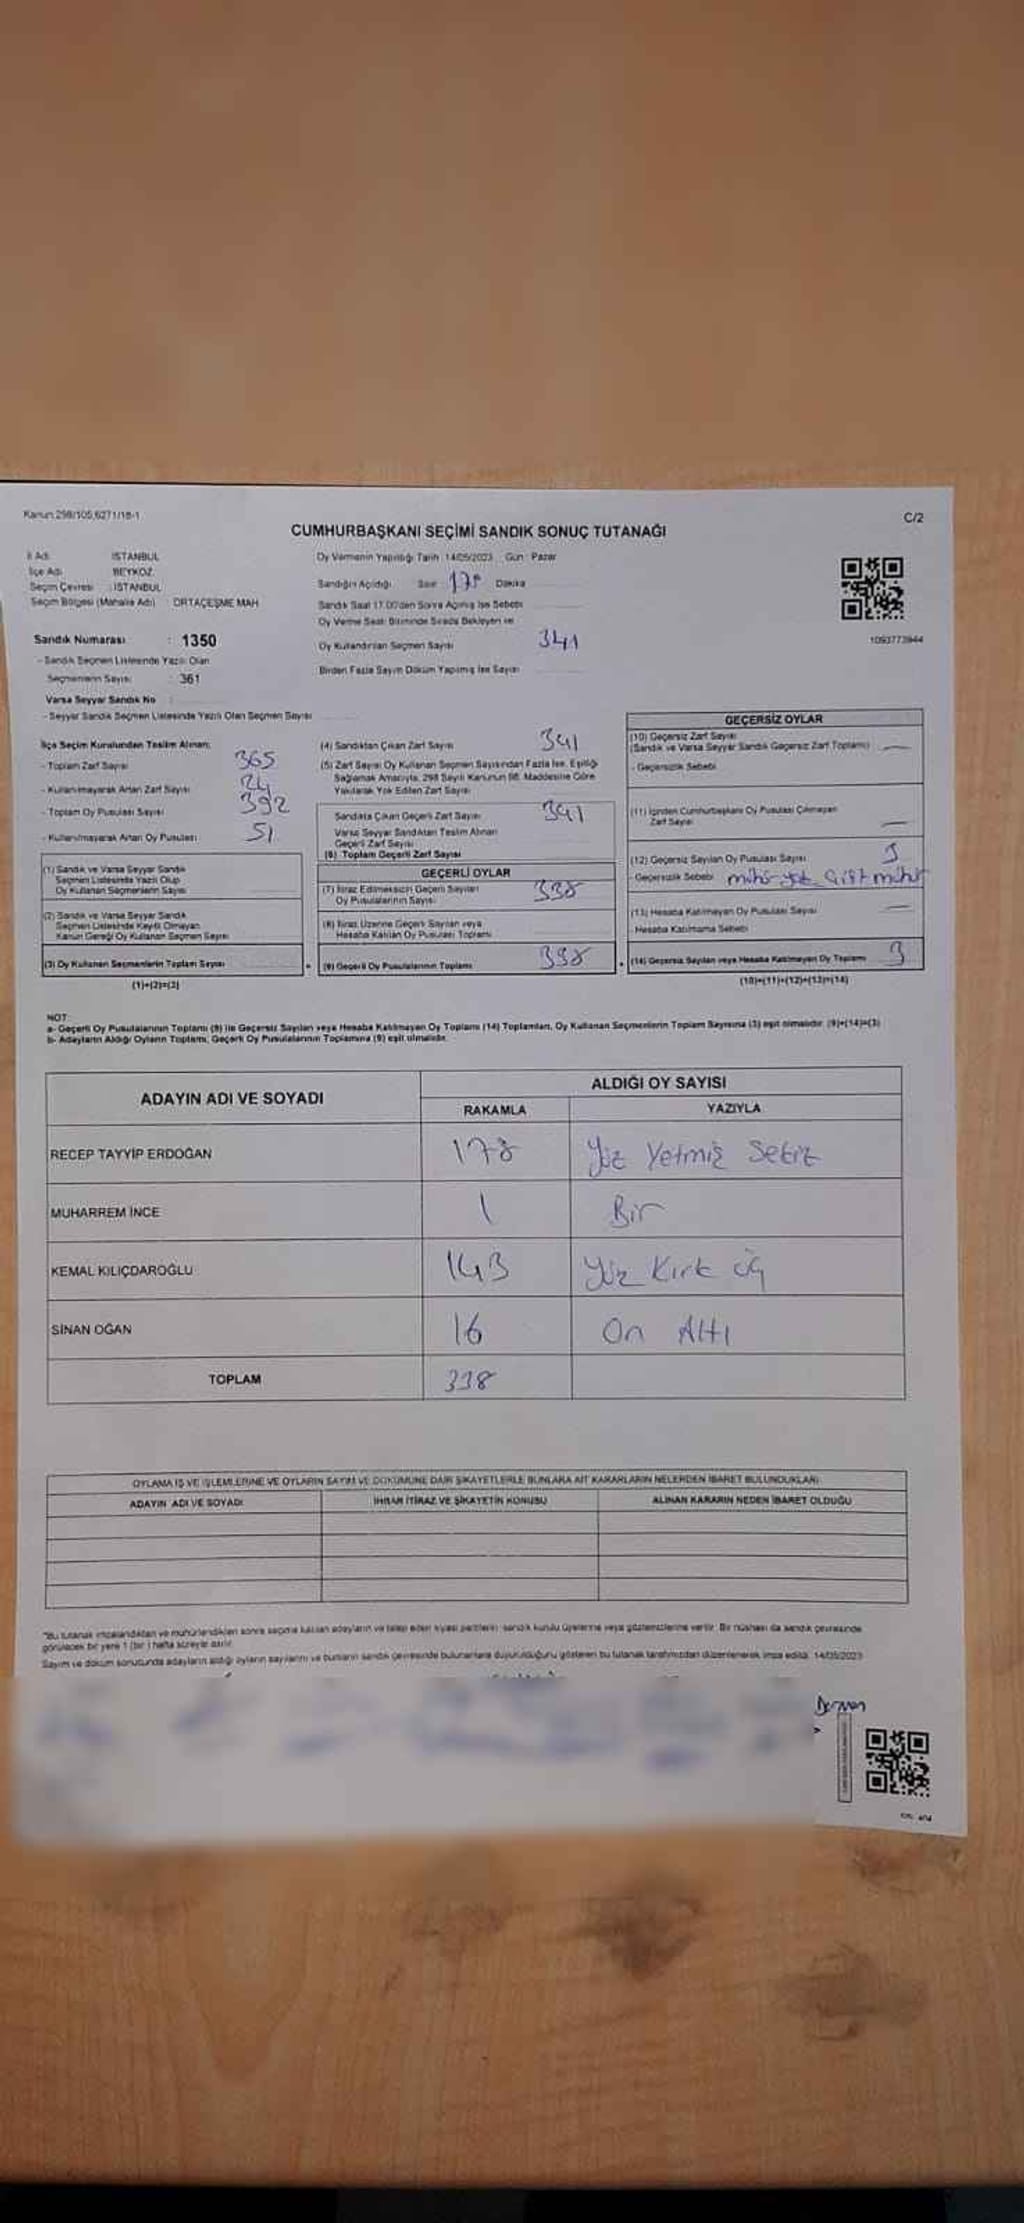 Kanun:298/105,6271/18-1
C/2
CUMHURBAŞKANI SEÇİMİ SANDIK SONUÇ TUTANAĞI
İl Adı : İSTANBUL
İlçe Adı : BEYKOZ
Seçim Çevresi : İSTANBUL
Seçim Bölgesi (Mahalle Adı) : ORTAÇEŞME MAH
Sandık Numarası : 1350
- Sandık Seçmen Listesinde Yazılı Olan
Seçmenlerin Sayısı : 361
Varsa Seyyar Sandık No :
- Seyyar Sandık Seçmen Listesinde Yazılı Olan Seçmen Sayısı
Oy Vermenin Yapıldığı Tarih : 14/05/2023 Gün : Pazar
Sandığın Açıldığı Saat Dakika
Sandık Saat 17.00'den Sonra Açılmış İse Sebebi
Oy Verme Saati Bitiminde Sırada Bekleyen ve
Oy Kullandırılan Seçmen Sayısı 341
Birden Fazla Sayım Döküm Yapılmış İse Sayısı
1093773944
İlçe Seçim Kurulundan Teslim Alınan;
- Toplam Zarf Sayısı 365
- Kullanılmayarak Artan Zarf Sayısı 24
- Toplam Oy Pusulası Sayısı 392
- Kullanılmayarak Artan Oy Pusulası 51
(1) Sandık ve Varsa Seyyar Sandık
Seçmen Listesinde Yazılı Olup
Oy Kullanan Seçmenlerin Sayısı
(2) Sandık ve Varsa Seyyar Sandık
Seçmen Listesinde Kayıtlı Olmayan
Kanun Gereği Oy Kullanan Seçmen Sayısı
(3) Oy Kullanan Seçmenlerin Toplam Sayısı
(1)+(2)=(3)
(4) Sandıktan Çıkan Zarf Sayısı 341
(5) Zarf Sayısı Oy Kullanan Seçmen Sayısından Fazla İse, Eşitliği
Sağlamak Amacıyla, 298 Sayılı Kanunun 98. Maddesine Göre
Yakılarak Yok Edilen Zarf Sayısı
Sandıkta Çıkan Geçerli Zarf Sayısı 341
Varsa Seyyar Sandıktan Teslim Alınan
Geçerli Zarf Sayısı
(6) Toplam Geçerli Zarf Sayısı
GEÇERLİ OYLAR
(7) İtiraz Edilmeksizin Geçerli Sayılan
Oy Pusulalarının Sayısı 338
(8) İtiraz Üzerine Geçerli Sayılan veya
Hesaba Katılan Oy Pusulası Toplamı
(9) Geçerli Oy Pusulalarının Toplamı 338
GEÇERSİZ OYLAR
(10) Geçersiz Zarf Sayısı
(Sandık ve Varsa Seyyar Sandık Geçersiz Zarf Toplamı) —
- Geçersizlik Sebebi
(11) İçinden Cumhurbaşkanı Oy Pusulası Çıkmayan
Zarf Sayısı —
(12) Geçersiz Sayılan Oy Pusulası Sayısı 3
- Geçersizlik Sebebi mühür yok çift mühür
(13) Hesaba Katılmayan Oy Pusulası Sayısı —
- Hesaba Katılmama Sebebi
(14) Geçersiz Sayılan veya Hesaba Katılmayan Oy Toplamı 3
(10)+(11)+(12)+(13)=(14)
NOT:
a- Geçerli Oy Pusulalarının Toplamı (9) ile Geçersiz Sayılan veya Hesaba Katılmayan Oy Toplamı (14) Toplamları, Oy Kullanan Seçmenlerin Toplam Sayısına (3) eşit olmalıdır. (9)+(14)=(3)
b- Adayların Aldığı Oyların Toplamı, Geçerli Oy Pusulalarının Toplamına (9) eşit olmalıdır.
ADAYIN ADI VE SOYADI
ALDIĞI OY SAYISI
RAKAMLA YAZIYLA
RECEP TAYYİP ERDOĞAN 178 Yüz Yetmiş Sekiz
MUHARREM İNCE 1 Bir
KEMAL KILIÇDAROĞLU 143 Yüz Kırk üç
SİNAN OĞAN 16 On Altı
TOPLAM 338
OYLAMA İŞ VE İŞLEMLERİNE VE OYLARIN SAYIM VE DÖKÜMÜNE DAİR ŞİKAYETLERLE BUNLARA AİT KARARLARIN NELERDEN İBARET BULUNDUKLARI
ADAYIN ADI VE SOYADI İHBAR İTİRAZ VE ŞİKAYETİN KONUSU ALINAN KARARIN NEDEN İBARET OLDUĞU
"Bu tutanak imzalandıktan ve mühürlendikten sonra seçime katılan adayların ve talep eden siyasi partilerin sandık kurulu üyelerine veya gözlemcilerine verilir. Bir nüshası da sandık çevresinde
görülecek bir yere 1 (bir) hafta süreyle asılır.
Sayım ve döküm sonucunda adayların aldığı oyların sayılarını ve bunların sandık çevresinde bulunanlara duyurulduğunu gösteren bu tutanak tarafımızdan düzenlenerek imza edildi. 14/05/2023